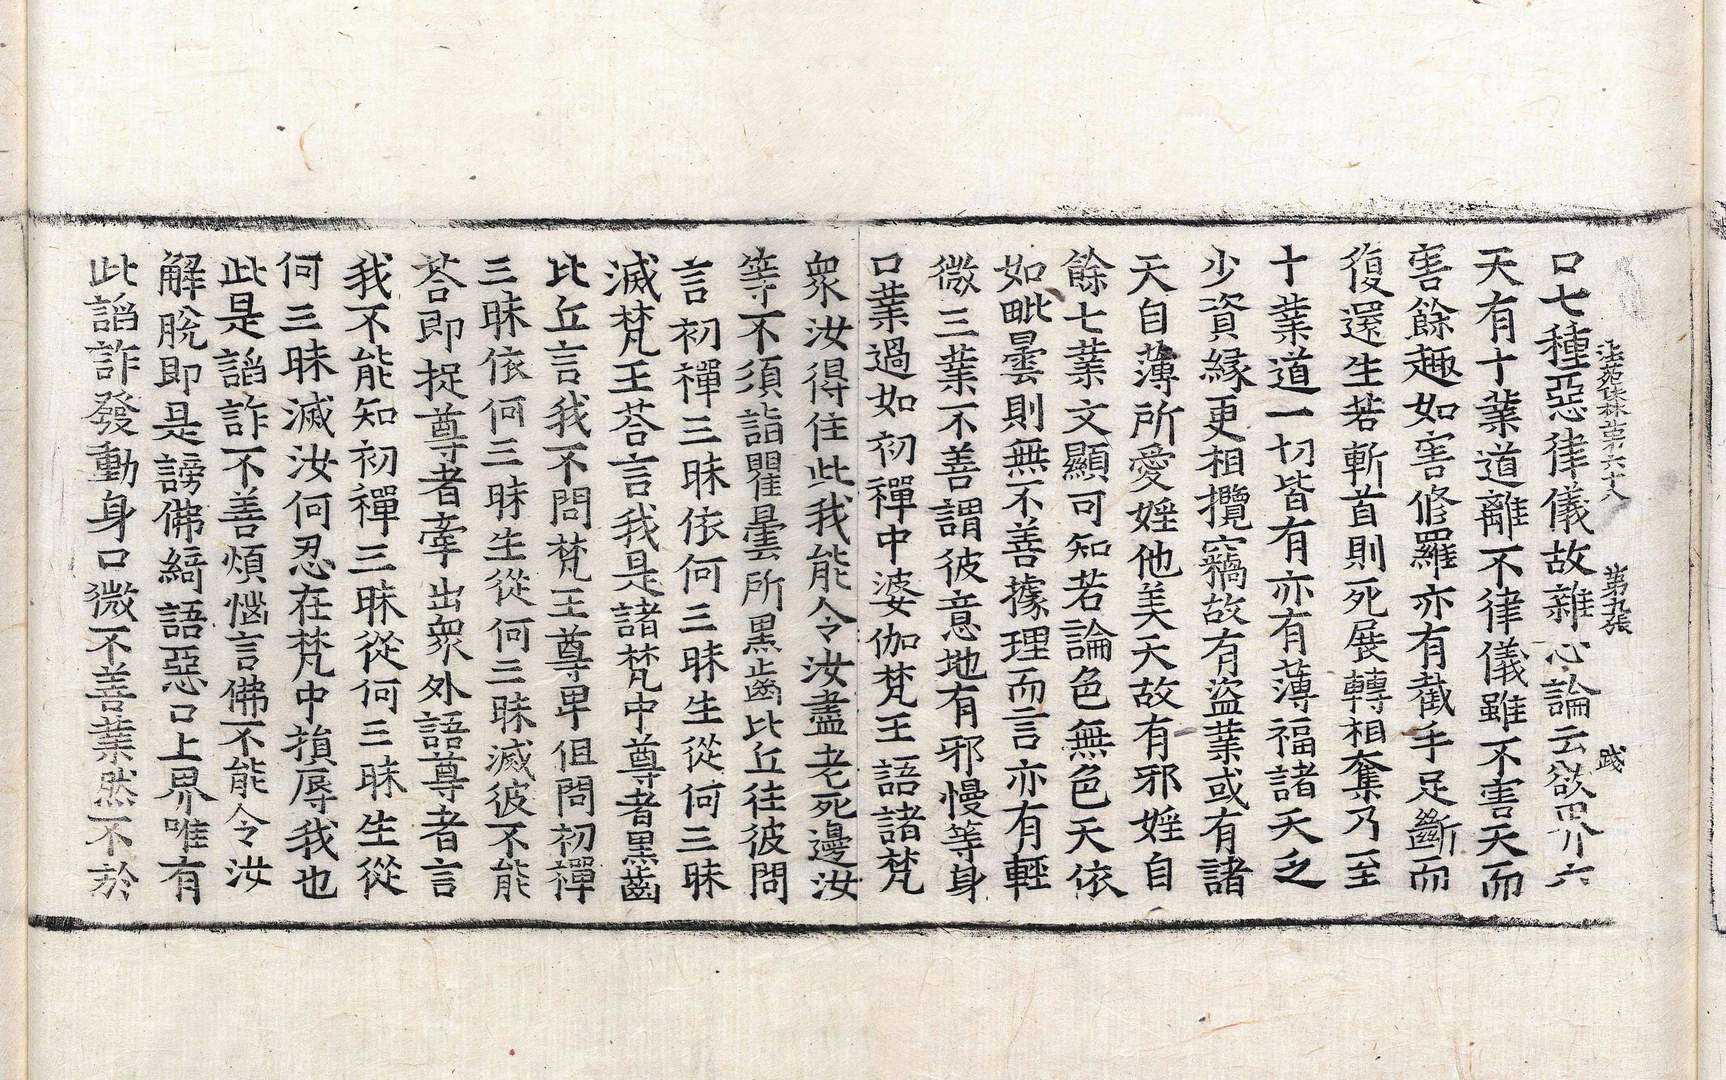 法苑珠林第六十八 第九張 踐
口七種惡律儀故雜心論云欲界六
天有十業道離不律儀雖不害天而
害餘趣如害修羅亦有截手足斷而
復還生若斬首則死展轉相奪乃至
十業道一切皆有亦有薄福諸天乏
少資緣更相攬竊故有盜業或有諸
天自薄所愛婬他美天故有邪婬自
餘七業文顯可知若論色無色天依
如毗曇則無不善據理而言亦有輕
微三業不善謂彼意地有邪慢等身
口業過如初禪中婆伽梵王語諸梵
衆汝得住此我能令汝盡老死邊汝
等不須詣瞿曇所黑齒比丘往彼問
言初禪三昧依何三昧生從何三昧
滅梵王荅言我是諸梵中尊者黑齒
比丘言我不問梵王尊卑但問初禪
三昧依何三昧生從何三昧滅彼不能
荅即捉尊者牽出衆外語尊者言
我不能知初禪三昧從何三昧生從
何三昧滅汝何忍在梵中損辱我也
此是諂詐不善煩惱言佛不能令汝
解脫即是謗佛綺語惡口上界唯有
此諂詐發動身口微不善業然不於